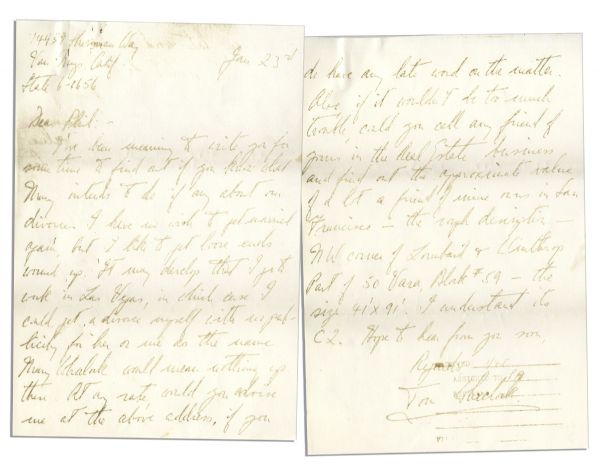 14459 Sherman Way
Van Nuys, Calif.
Jan 23rd
State 6-1656
Dear Phil: -
I've been meaning to write you for
some time to find out if you know what
Mary intends to do if any about our
divorce. I have no wish to get married
again, but I like to get loose ends
wound up. It may develop that I go to
work in Las Vegas, in which case I
could get a divorce myself with no pub-
licity for her or me as the name
Mary would mean nothing up
there. At any rate, would you advise
me at the above address, if you
do have any late word on the matter.
Also if it wouldn't be too much
trouble, could you call any friend of
yours in the Real Estate business
and find out the approximate value
of a lot a friend of mine owns in San
Francisco - the rough description -
NW corner of Lombard & Winthrop
Part of 50 Vara Block #59 - the
size 41' x 91'. I understand its
C2. Hope to hear from you soon,
Regards
Tom